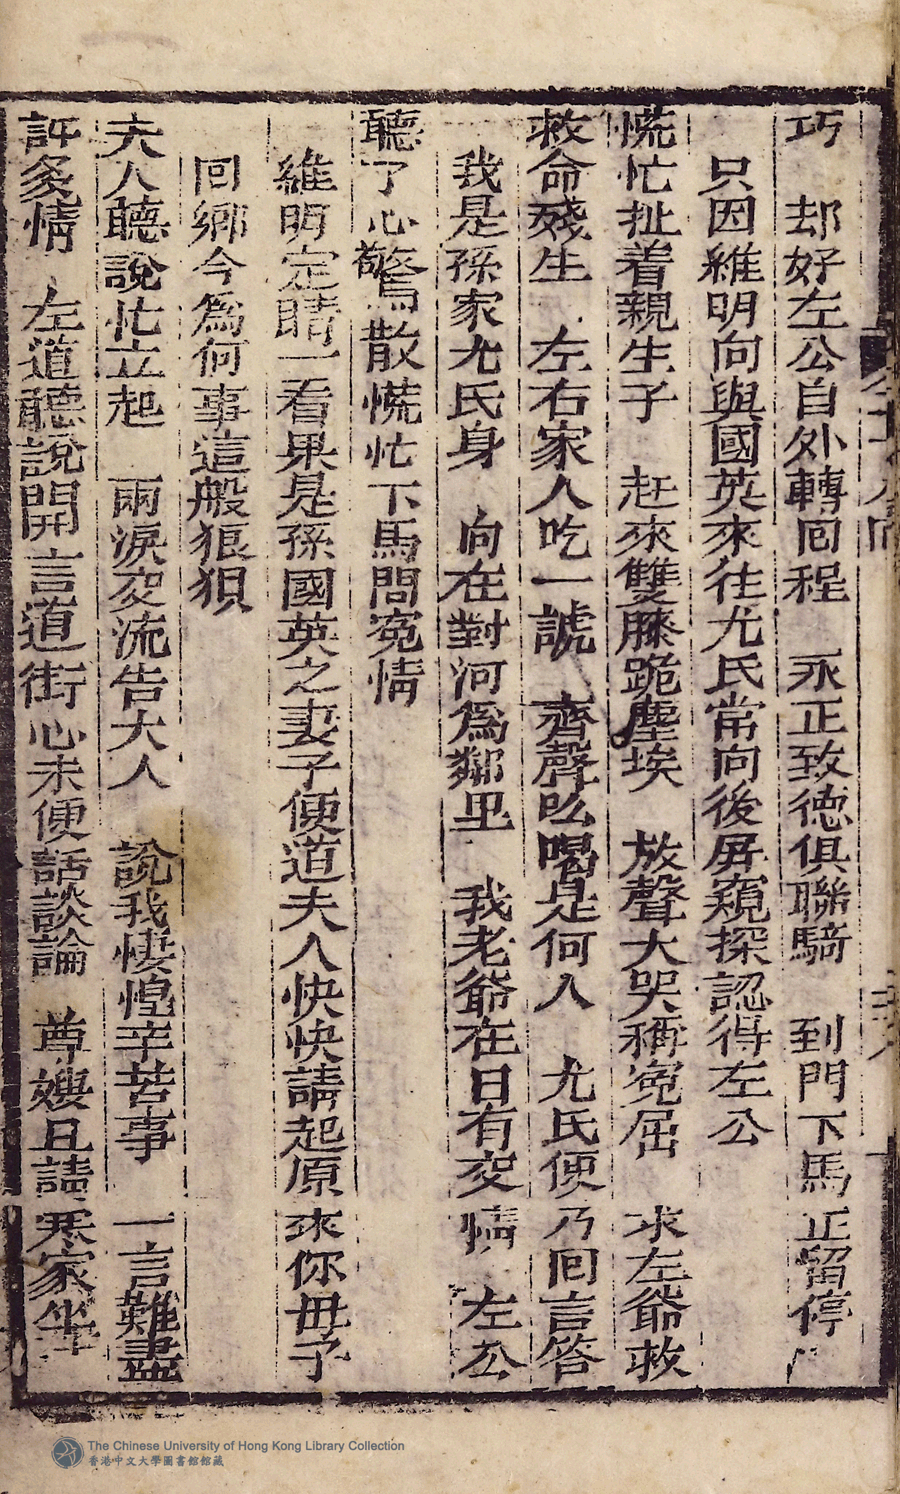 巧　却好左公自外轉囘程　永正致德俱聯騎　到門下馬正留停
只因維明向與國英來往尤氏常向後屏窺探認得左公
慌忙扯着親生子　赶來雙膝跪塵埃　放聲大哭稱寃屈　求左爺救
救命殘生　左右家人吃一諕　齊聲吆喝是何人　尤氏便乃囘言答
我是孫家尤氏身　向在對河爲鄰里　我老爺在日有交情　左公
聽了心驚散慌忙下馬問寃情
維明定睛一看果是孫國英之妻子便道夫人快快請起原來你毋子
回鄉今為何事這般狼狽
夫人聽說忙立起　兩淚交流告大人　說我悽惶辛苦事　一言難盡
訴衷情　左道聽說開言道　街心未便話談論　尊嫂且請寒家坐
The Chinese University of Hong Kong Library Collection
香港中文大學圖書館館藏